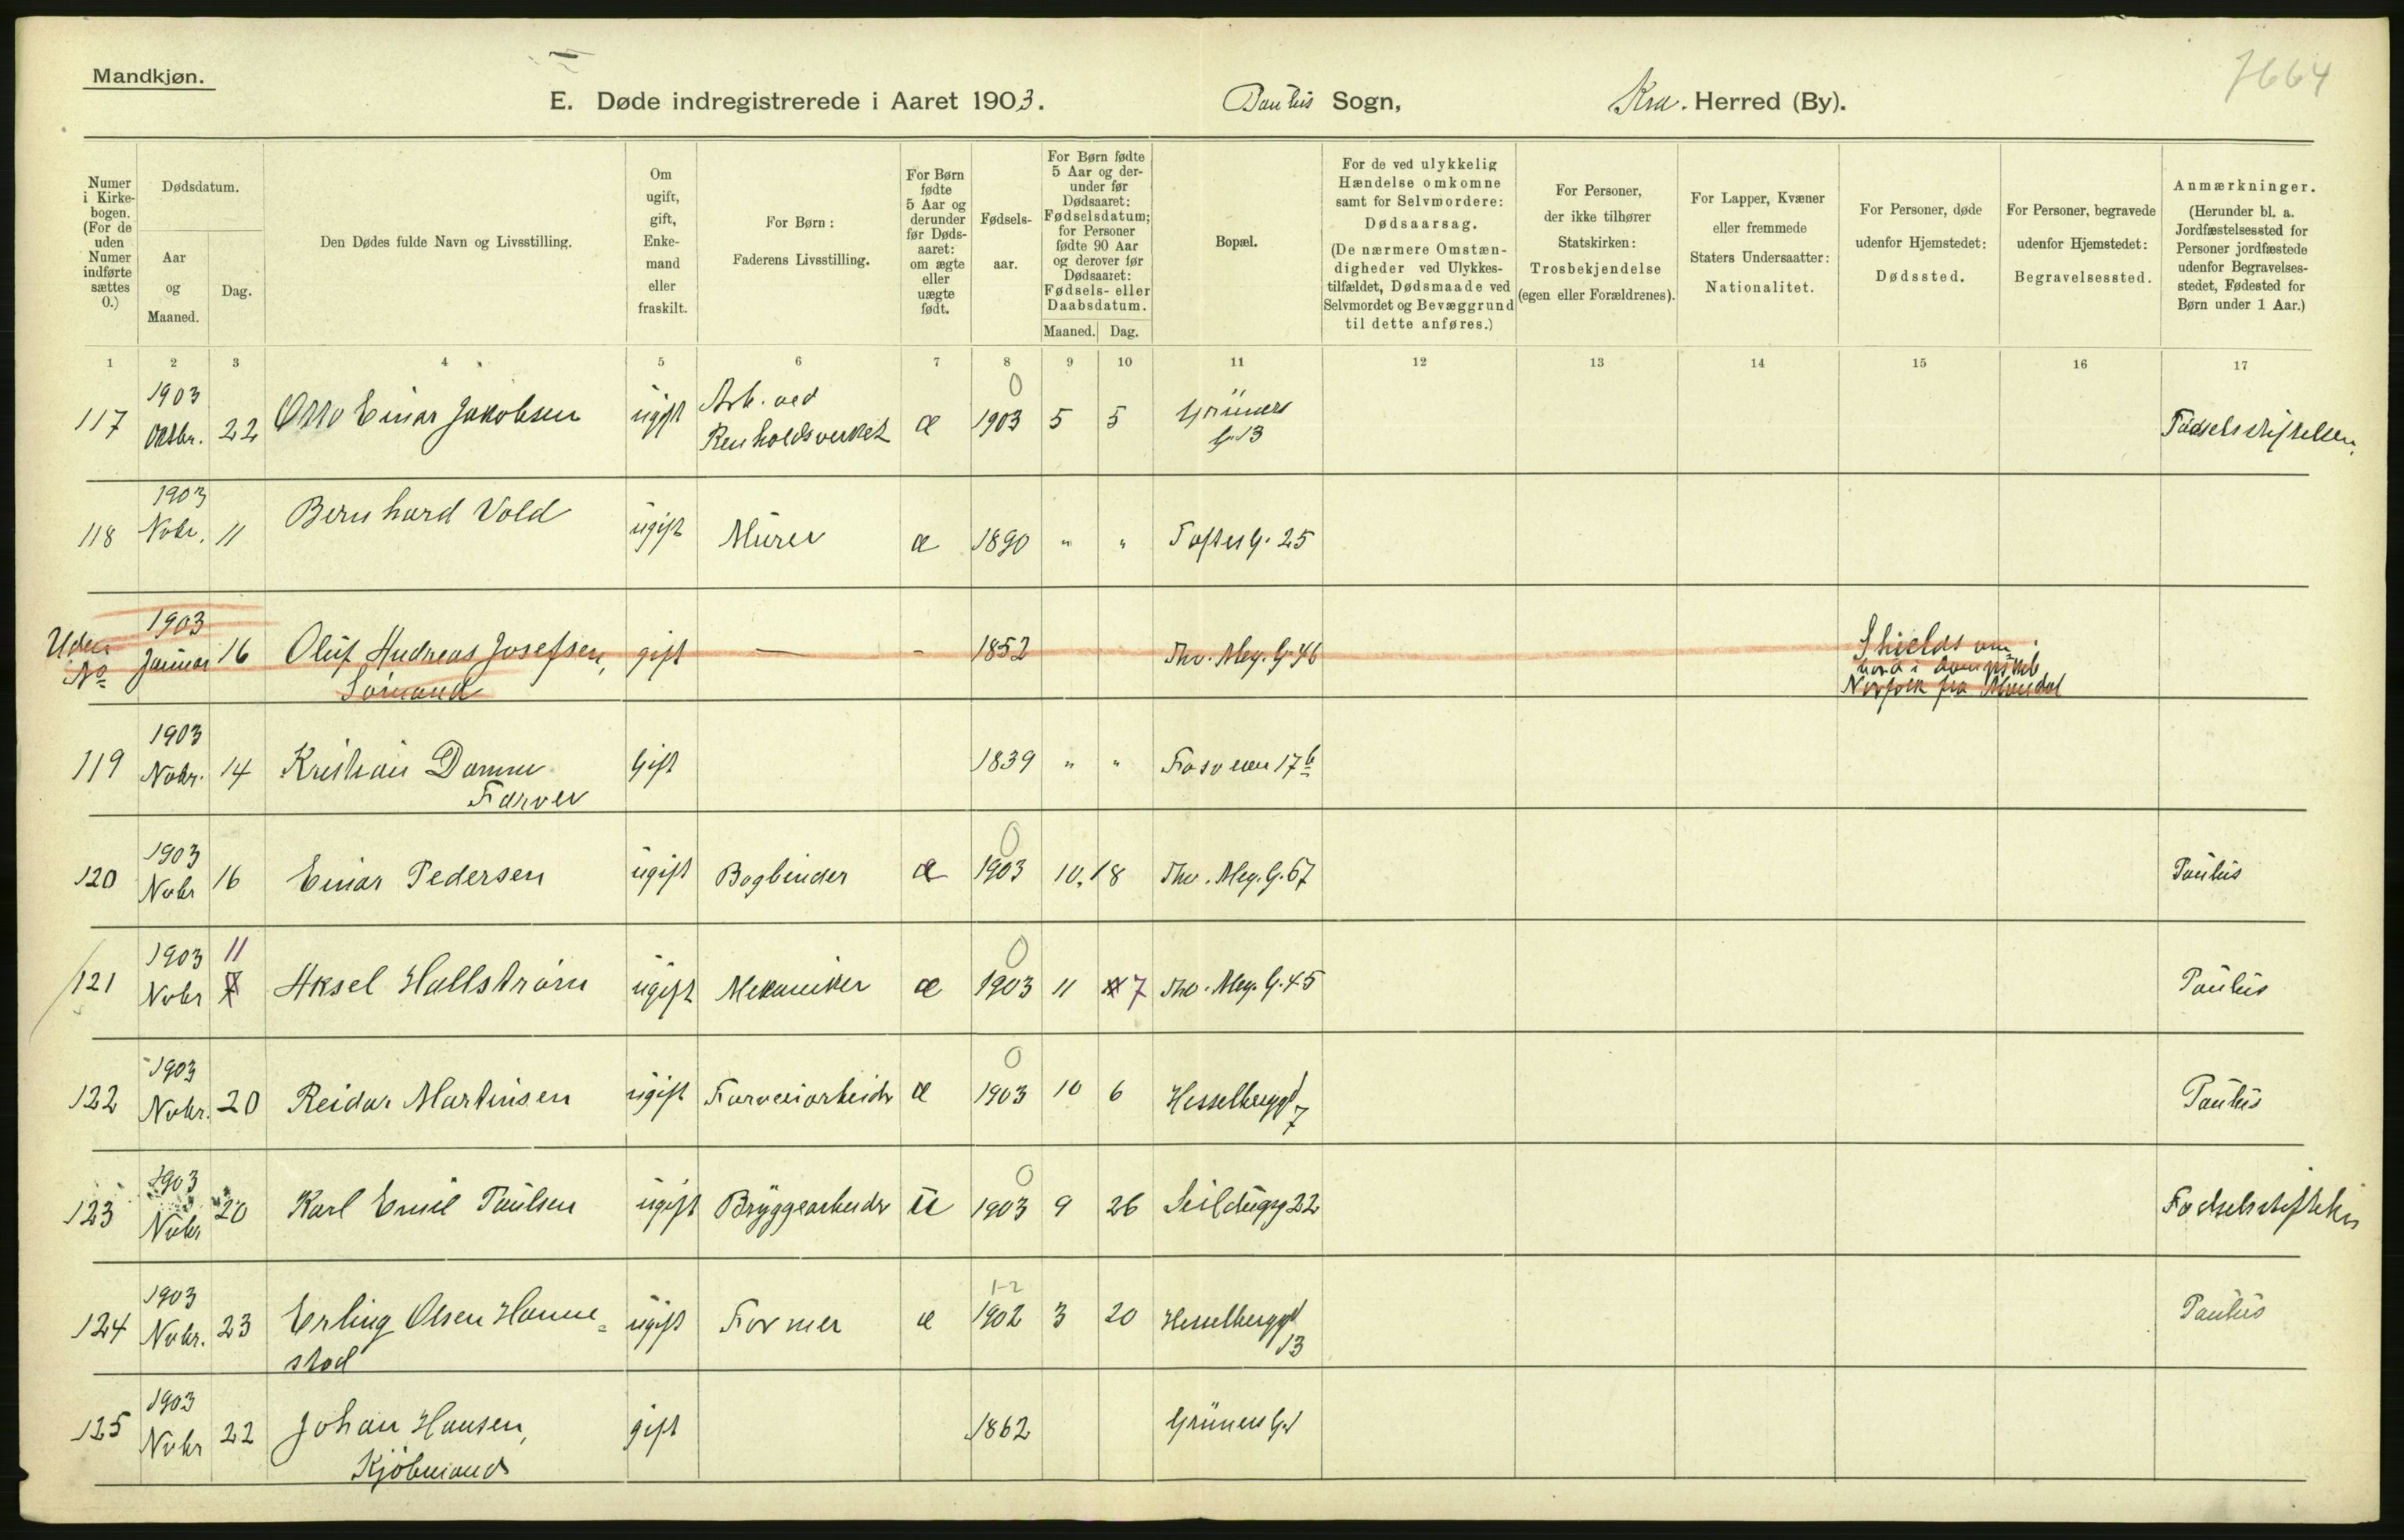 Mandkjøn.
7664
E. Døde indregistrerede i Aaret 1903. Paulus Sogn, Kra. Herred (By).
Numer i Kirkebogen. (For de uden Numer indførte sættes 0.)
Dødsdatum.
Aar og Maaned.
Dag.
Den Dødes fulde Navn og Livsstilling.
Om ugift, gift, Enkemand eller fraskilt.
For Børn: Faderens Livsstilling.
For Børn fødte 5 Aar og derunder før Dødsaaret: om ægte eller uægte født.
Fødselsaar.
For Børn fødte 5 Aar og derunder før Dødsaaret: Fødselsdatum; for Personer fødte 90 Aar og derover før Dødsaaret: Fødsels- eller Daabsdatum.
Maaned. Dag.
Bopæl.
For de ved ulykkelig Hændelse omkomne samt for Selvmordere: Dødsaarsag. (De nærmere Omstændigheder ved Ulykkestilfældet, Dødsmaade ved Selvmordet og Bevæggrund til dette anføres.)
For Personer, der ikke tilhører Statskirken: Trosbekjendelse (egen eller Forældrenes).
For Lapper, Kvæner eller fremmede Staters Undersaatter: Nationalitet.
For Personer, døde udenfor Hjemstedet: Dødssted.
For Personer, begravede udenfor Hjemstedet: Begravelsessted.
Anmærkninger. (Herunder bl. a. Jordfæstelsessted for Personer jordfæstede udenfor Begravelsesstedet, Fødested for Børn under 1 Aar.)
1 2 3 4 5 6 7 8 9 10 11 12 13 14 15 16 17
117 1903 Oktbr. 22 Otto Einar Jakobsen ugift Arb. ved Renholdsverket æ 0 1903 5 5 Grüners G. 13 Fødselsstiftelsen.
118 1903 Nobr. 11 Bernhard Vold ugift Murer æ 1890 " " Toftes G. 25
Uden No 1903 Januar 16 Oluf Andreas Josefsen, Sømand gift — - 1852 Thv. Mey. G. 46 Shields om bord i Norfolk fra Mandal
119 1903 Nobr. 14 Kristian Damm Farver Gift 1839 " " Fosveien 17 b
120 1903 Nobr 16 Einar Pedersen ugift Bogbinder æ 0 1903 10. 18 Thv. Mey. G. 67 Paulus
121 1903 Nobr 11 7 Aksel Hallstrøm ugift Mekaniker æ 0 1903 11 7 Thv. Mey. G. 45 Paulus
122 1903 Nobr. 20 Reidar Martinsen ugift Farveriarbeider æ 0 1903 10 6 Hesselberggd 7 Paulus
123 1903 Nobr 20 Karl Emil Paulsen ugift Bryggearbeider u 0 1903 9 26 Seildugsg 22 Fødselsstiftelsen
124 1903 Nobr. 23 Erling Olsen Hannestad ugift Former æ 1-2 1902 3 20 Hesselberggd 13 Paulus
125 1903 Nobr 22 Johan Hansen, Kjøbmand gift 1862 Grüners G. 1